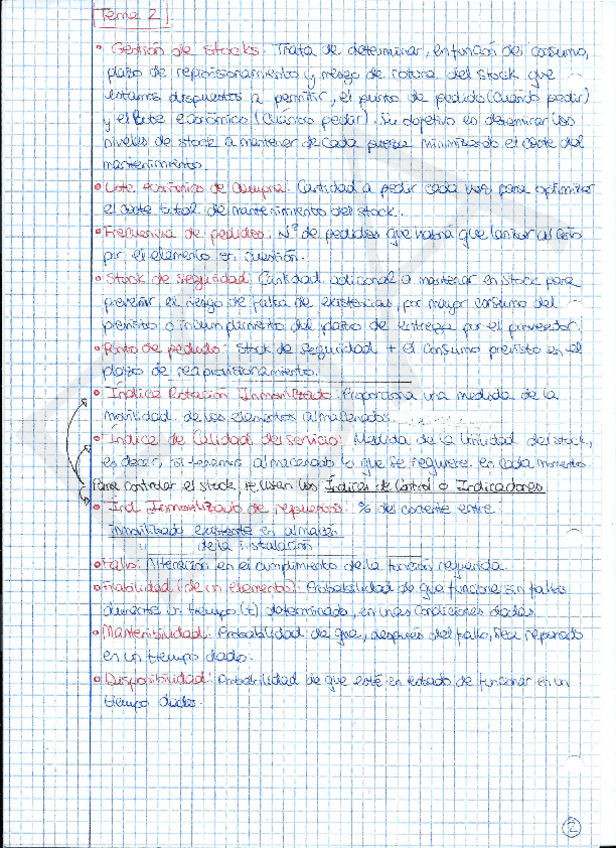 Tema 2
• Gestión de stocks: Trata de determinar, en función del consumo,
plazo de reprovisionamiento y riesgo de rotura del stock que
estamos dispuestos a permitir, el punto de pedido (Cuándo pedir)
y el lote económico (Cuánto pedir). Su objetivo es determinar los
niveles de stock a mantener de cada pieza minimizando el coste del
mantenimiento.
• Lote económico de compra: Cantidad a pedir cada vez para optimizar
el coste total de mantenimiento del stock.
• Frecuencia de pedidos: Nº de pedidos que habrá que lanzar al año
por el elemento en cuestión.
• Stock de seguridad: Cantidad adicional a mantener en stock para
prevenir el riesgo de falta de existencias, por mayor consumo del
previsto o incumplimiento del plazo de entrega por el proveedor.
• Punto de pedido: Stock de seguridad + el consumo previsto en el
plazo de reaprovisionamiento.
• Índice Rotación Inmovilizado: Proporciona una medida de la
movilidad de los elementos almacenados.
• Índice de Calidad del Servicio: Medida de la utilidad del stock,
es decir, si tenemos almacenado lo que se requiere en cada momento
Para controlar el stock, se usan los Índices de Control o Indicadores
• Ind. Inmovilizado de repuestos: % del cociente entre
inmovilizado existente en almacén
" de la instalación
• Fallo: Alteración en el cumplimiento de la función requerida.
• Fiabilidad (de un elemento): Probabilidad de que funcione sin fallos
durante un tiempo (t) determinado, en unas condiciones dadas.
• Mantenibilidad: Probabilidad de que, después del fallo, sea reparado
en un tiempo dado.
• Disponibilidad: Probabilidad de que esté en estado de funcionar en un
tiempo dado.
2